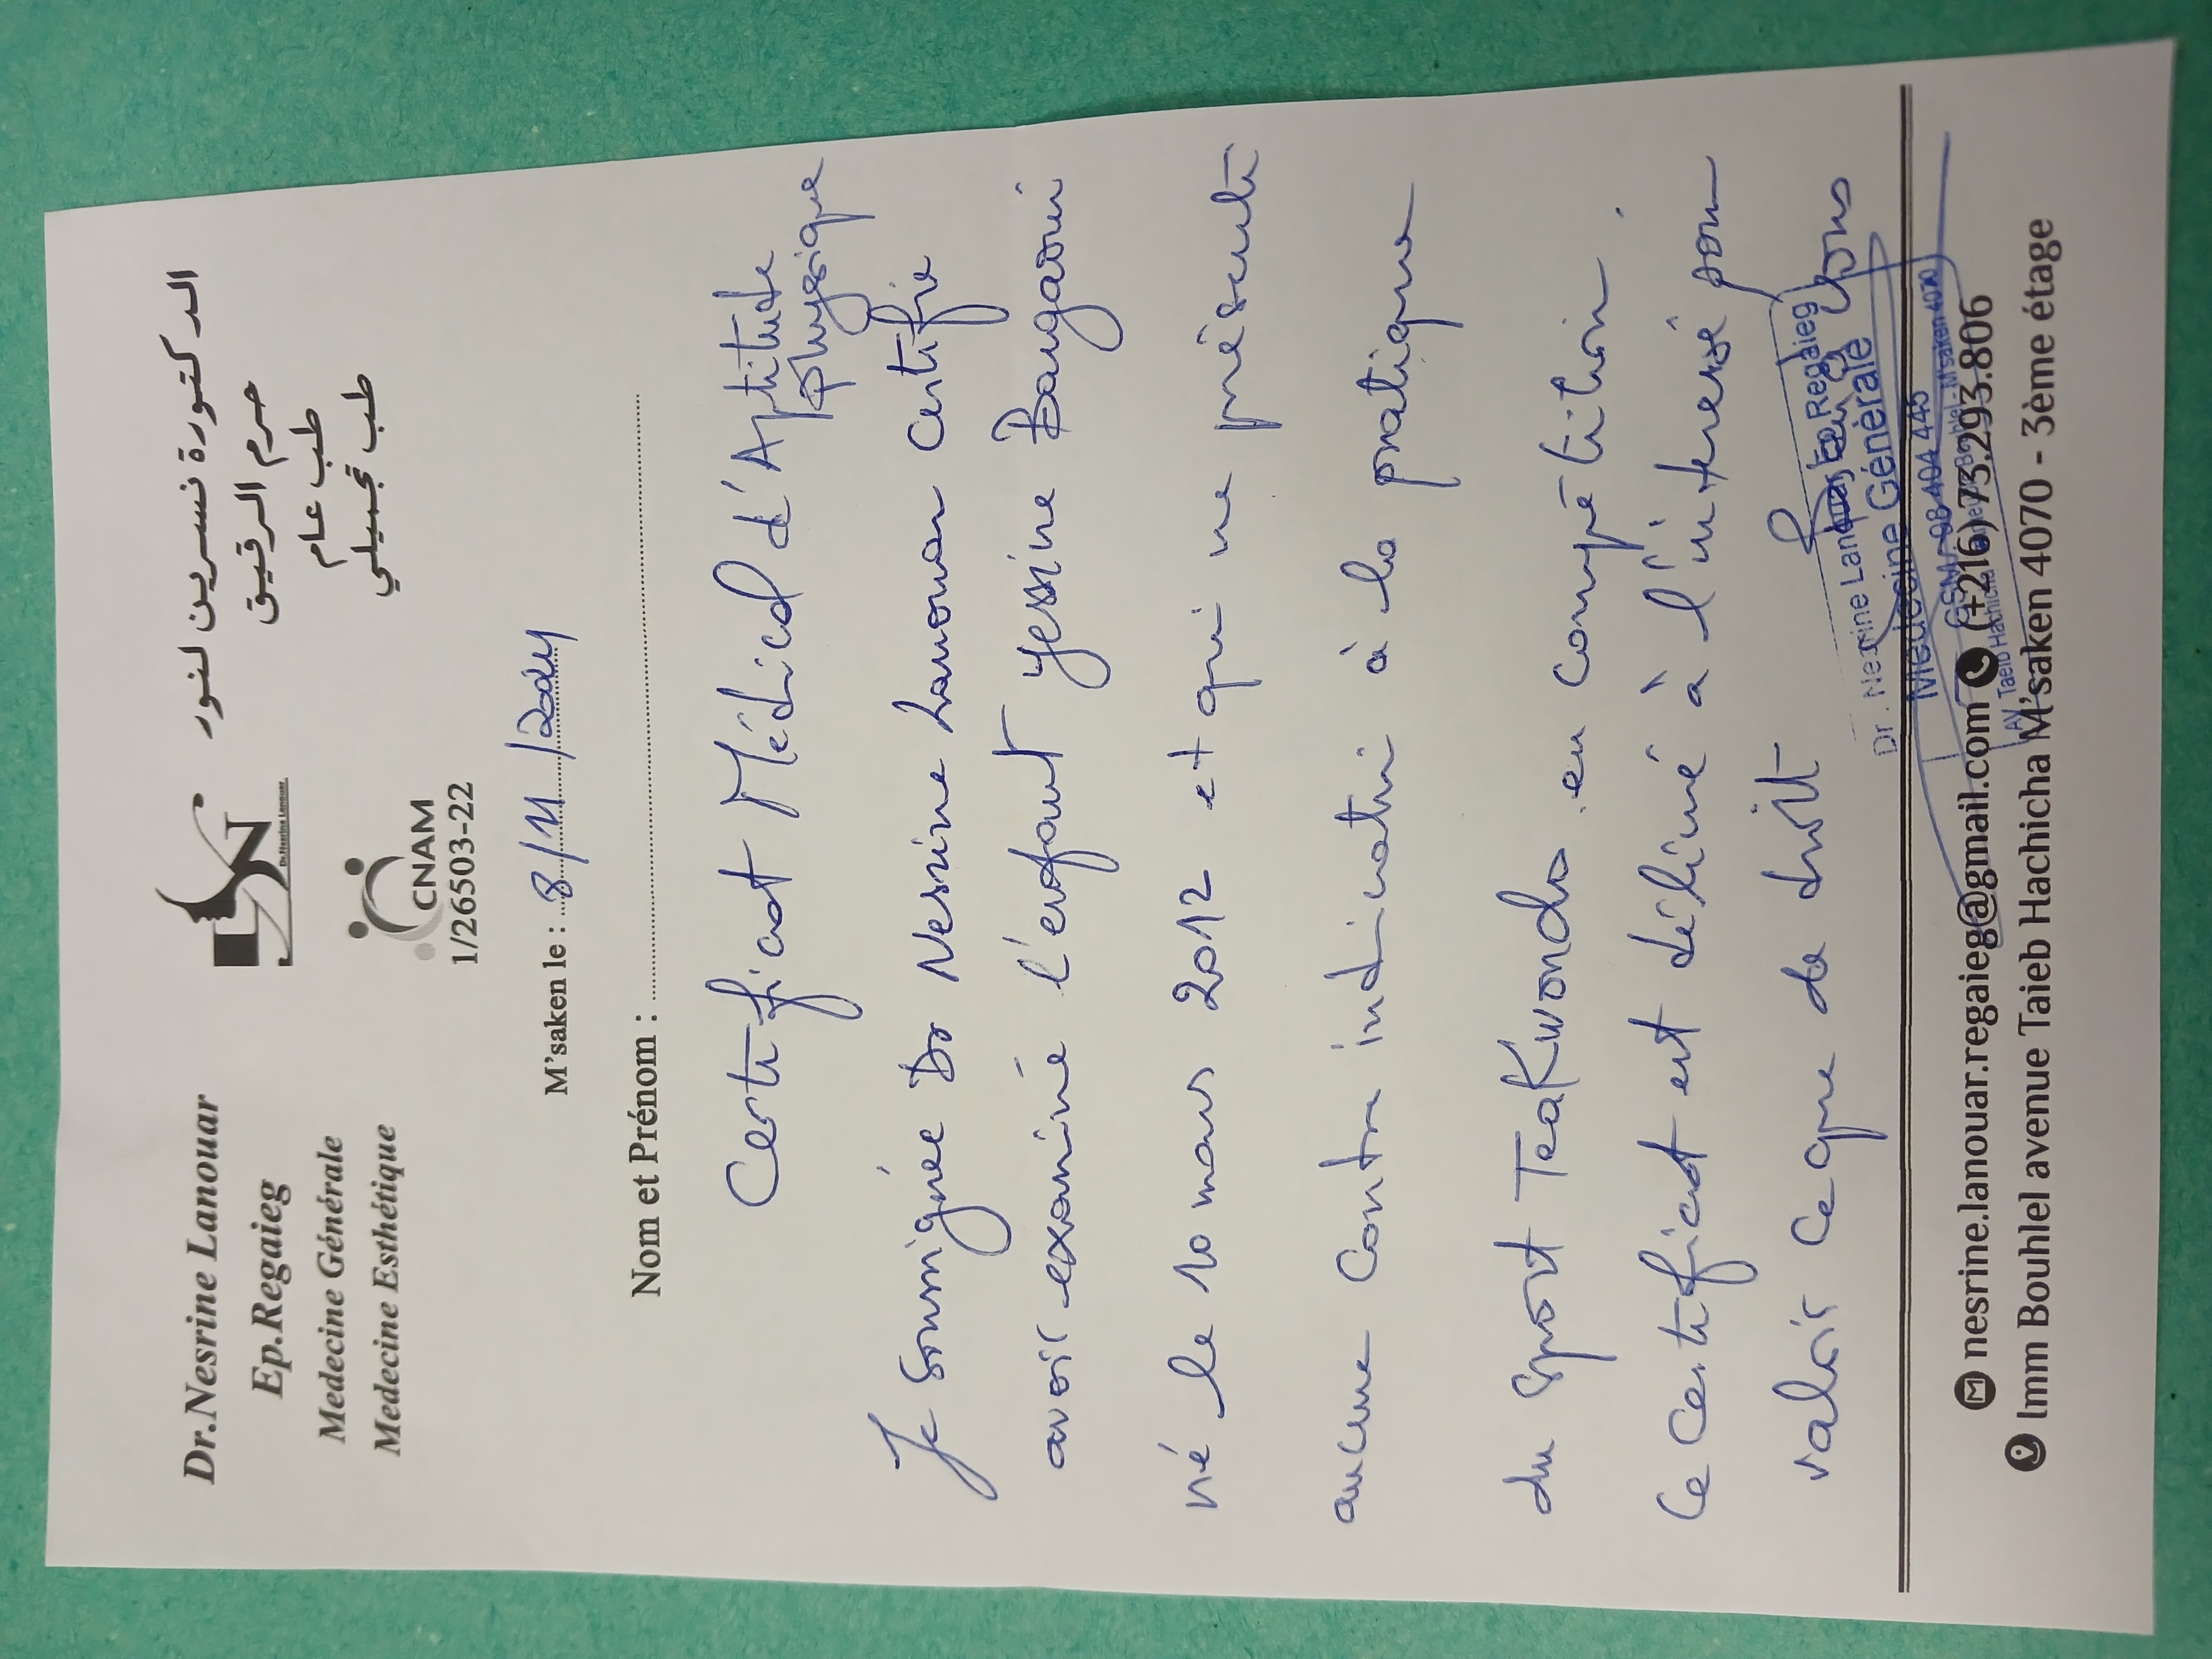 Dr.Nesrine Lanouar
Ep.Regaieg
Medecine Générale
Medecine Esthétique
Dr.Nesrine Lanouar
CNAM
1/26503-22
الدكتورة نسرين لنور
حرم الرقيق
طب عام
طب تجميلي
M'saken le : 8/11/2024
Nom et Prénom :
Certificat Médical d'Aptitude
physique
Je soussignée Dr Nesrine Lanouar Certifie
avoir examiné l'enfant yessine Bougaoui
né le 10 mars 2012 et qui ne présente
aucune Contre indication à la pratique
du sport TeaKwondo en compétition.
Ce Certificat est délivré à l'interessé pour
valoir ce que de droit
Dr. Nesrine Lanouar Regaieg
Médecine Générale
GSM: 98 404 445
AV Taeib Hachicha M'saken 4070
nesrine.lanouar.regaieg@gmail.com (+216) 73.293.806
Imm Bouhlel avenue Taieb Hachicha M'saken 4070 - 3ème étage